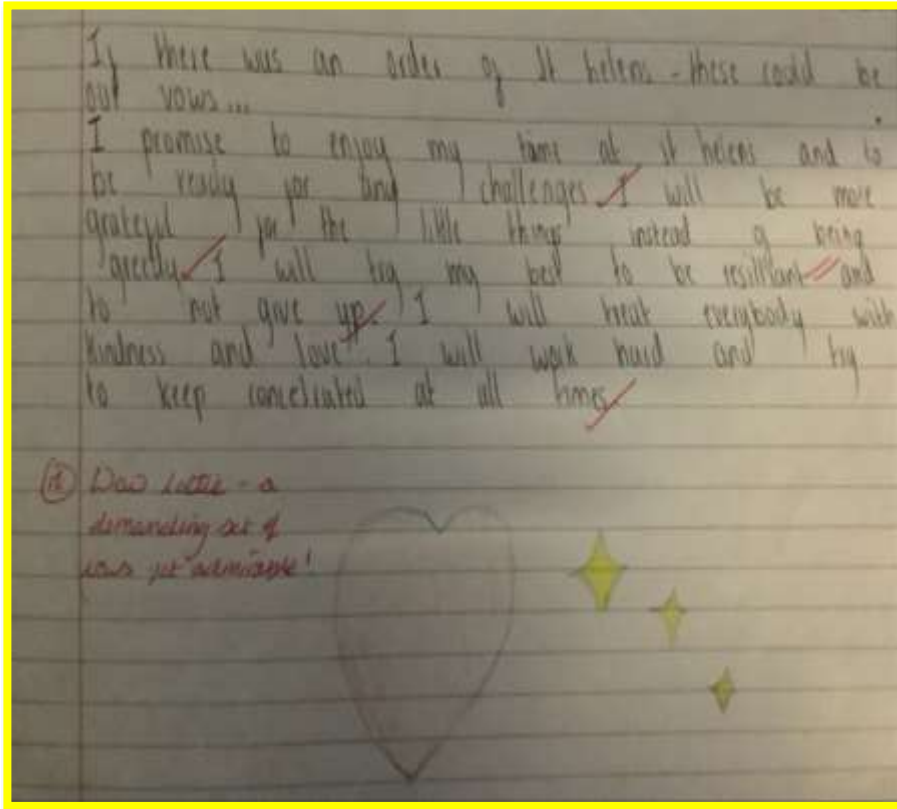 If there was an order of St helens - these could be
our vows...
I promise to enjoy my time at st helens and to
be ready for any challenges. I will be more
grateful for the little things instead of being
greedy. I will try my best to be resilliant and
to not give up. I will treat everybody with
kindness and love. I will work hard and try
to keep concetrated at all times.
Wow Lottie - a
demanding set of
vows yet admirable!